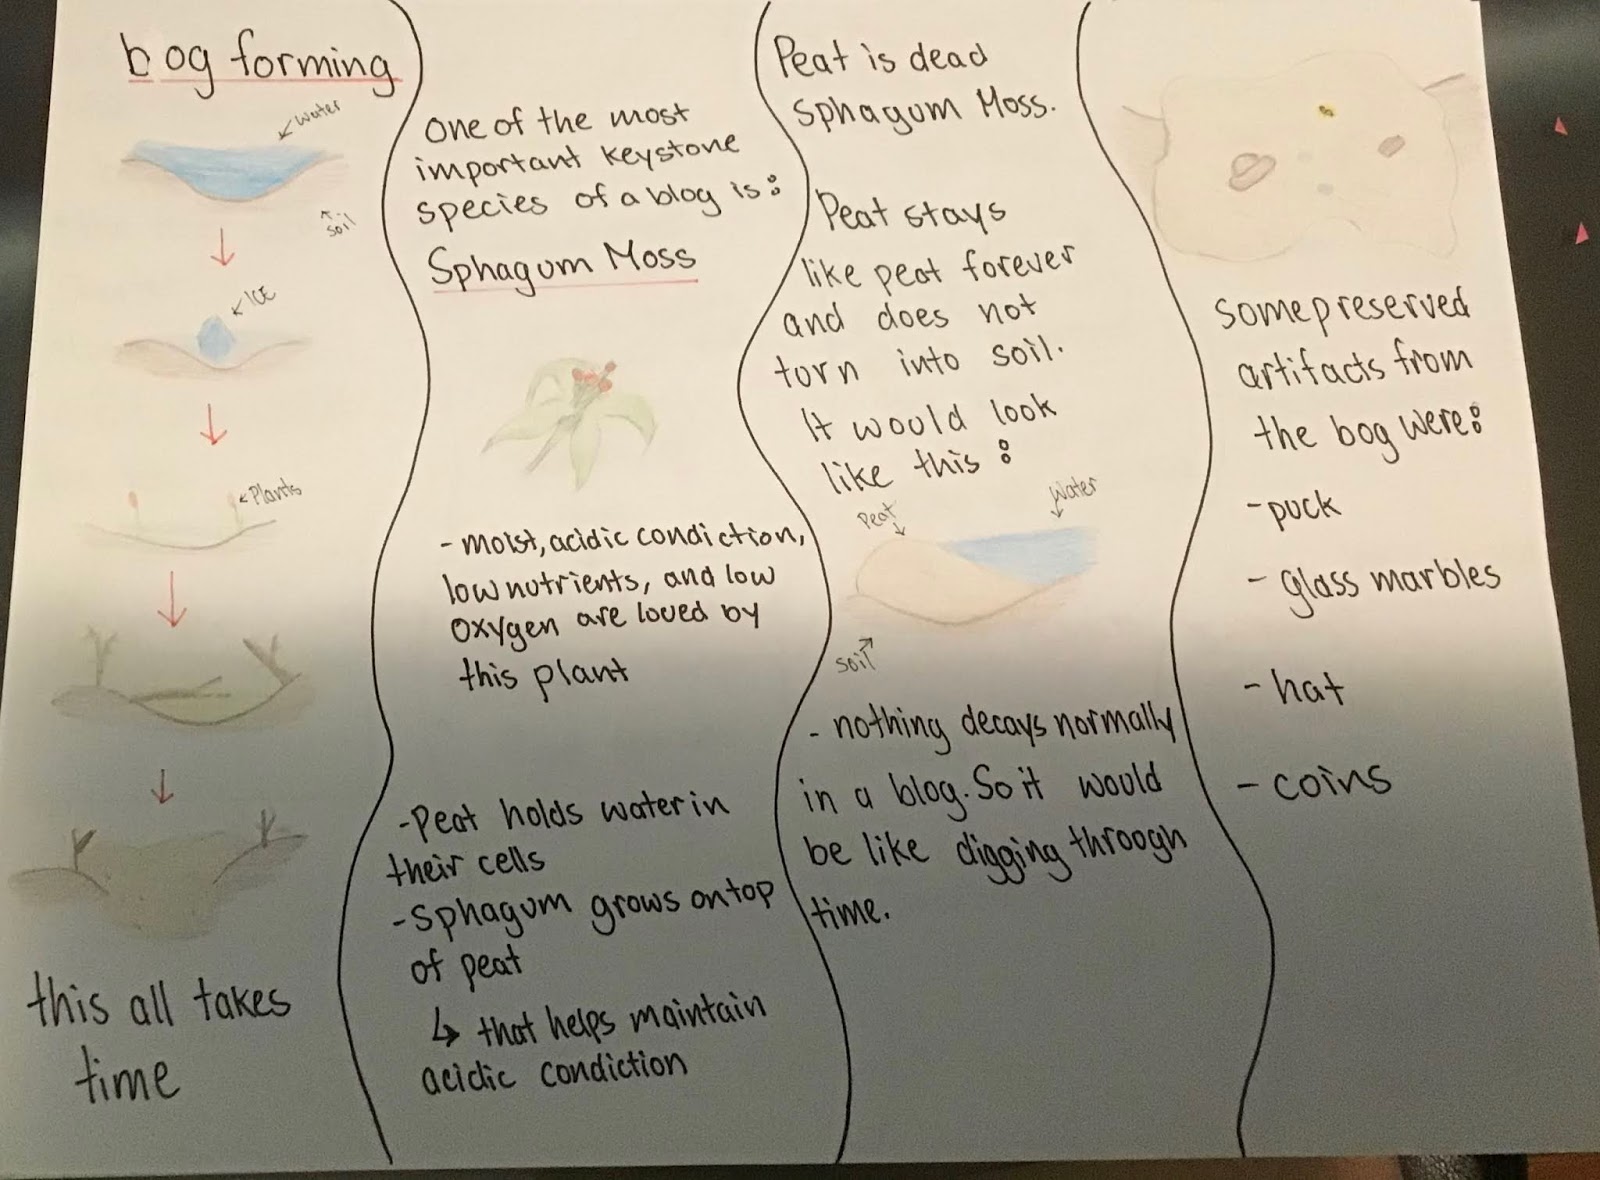 bog forming
Water
soil
ICE
Plants
this all takes
time
One of the most
important keystone
species of a blog is:
Sphagum Moss
- moist, acidic condiction,
low nutrients, and low
oxygen are loved by
this plant
- Peat holds water in
their cells
- Sphagum grows on top
of peat
↳ that helps maintain
acidic condiction
Peat is dead
Sphagum Moss.
Peat stays
like peat forever
and does not
turn into soil.
It would look
like this:
Peat
Water
Soil
- nothing decays normally
in a blog. So it would
be like digging through
time.
some preserved
artifacts from
the bog were:
- puck
- glass marbles
- hat
- coins